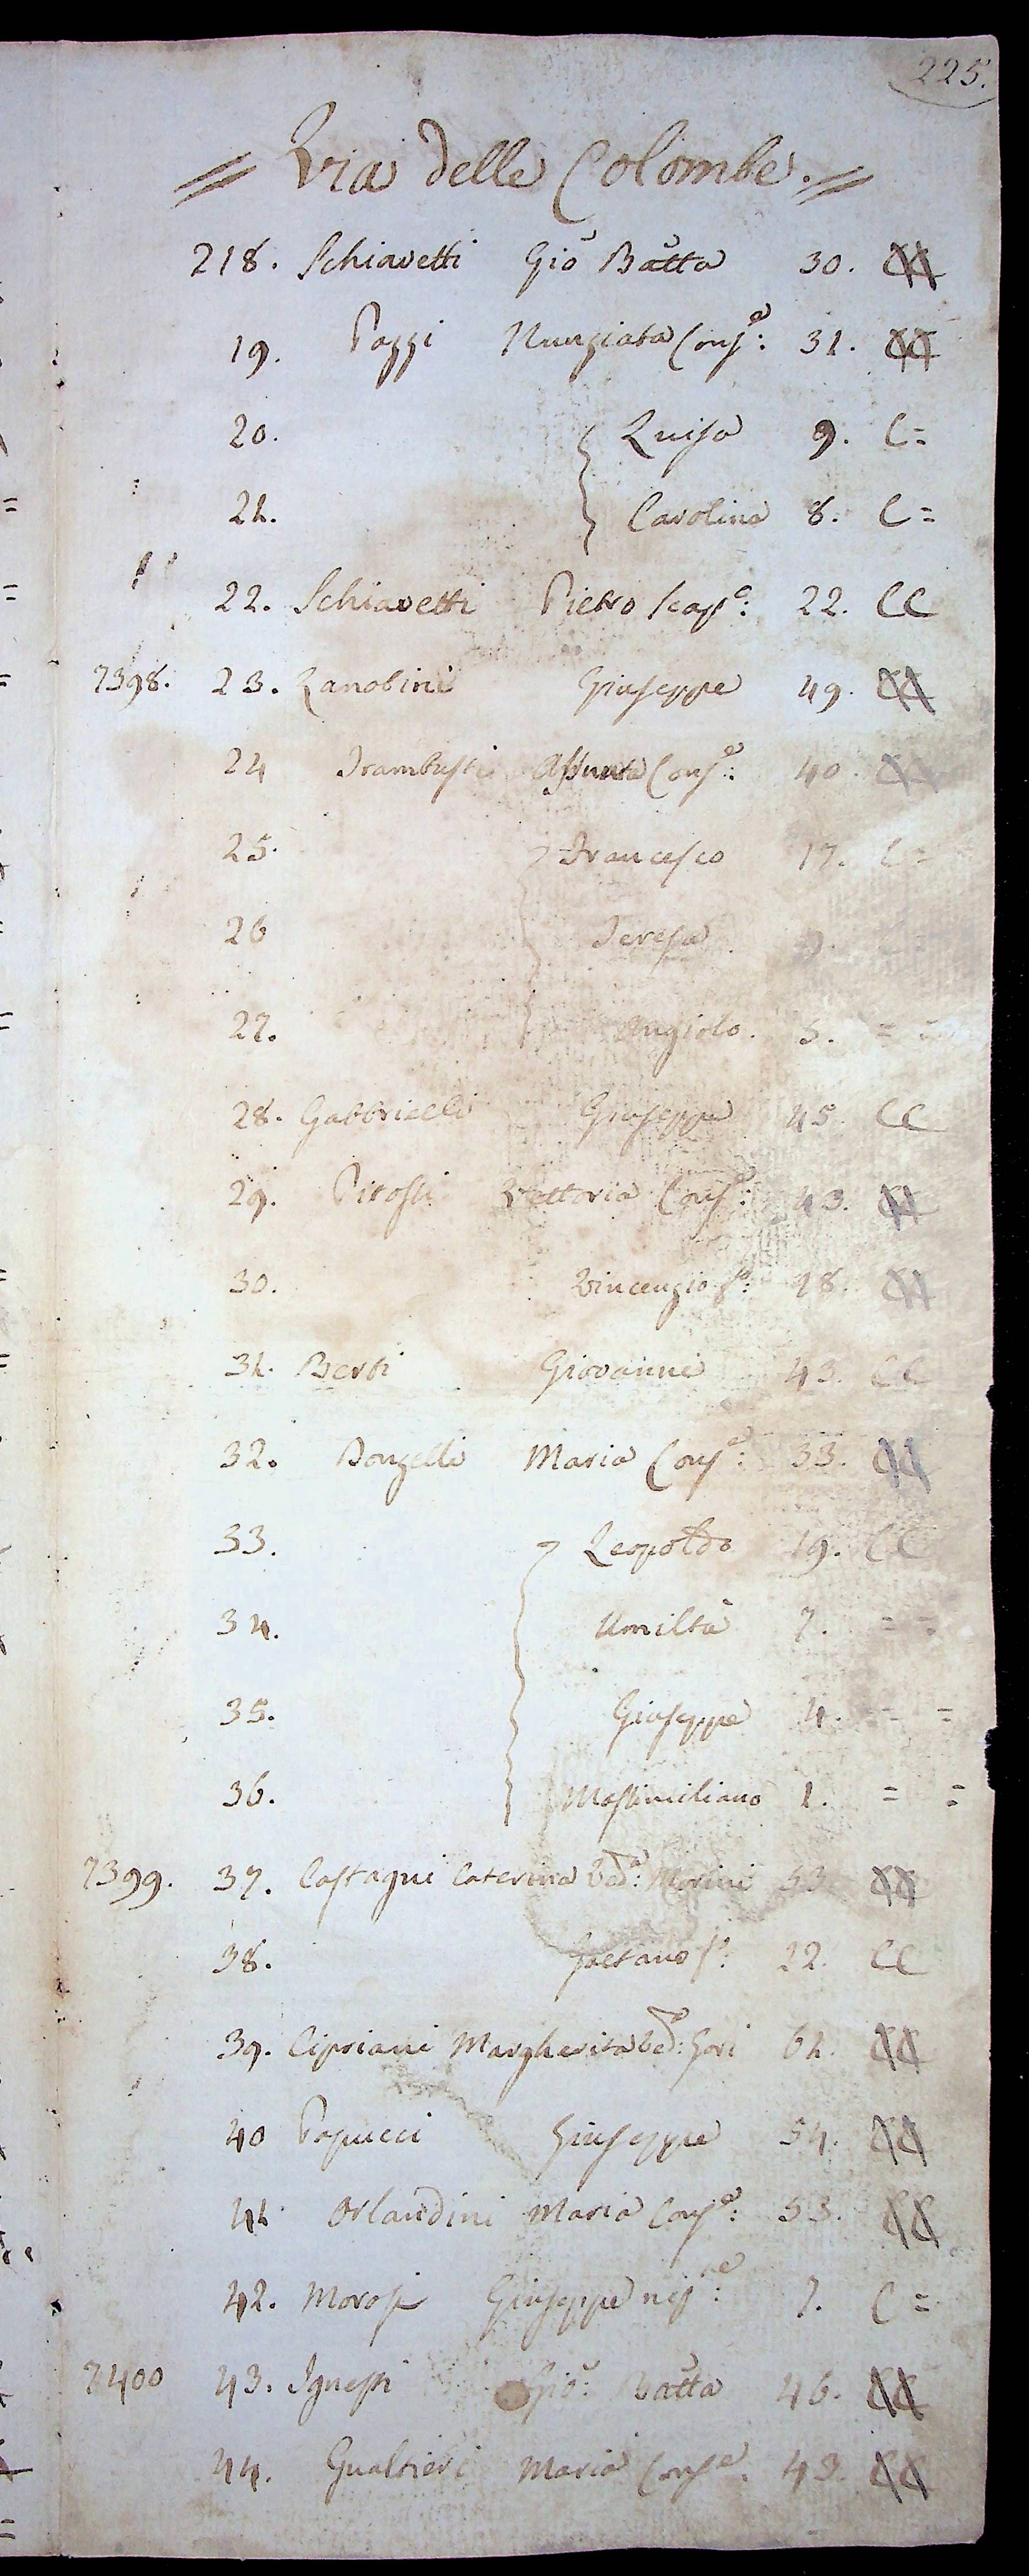 225.
= Via delle Colombe. =
218. Schiavetti Gio Batta 30. CC
19. Poggi Nunziata Conse: 31. CC
20. Luisa 9. C=
21. Carolina 8. C=
22. Schiavetti Pietro scapo: 22. CC
7398. 23. Zanobini Giuseppe 49. CC
24 Trambusti Assunta Conse: 40. CC
25. Francesco 17. C=
26 Teresa
27. Angiolo. 5. = =
28. Gabbrielli Giuseppe 45. CC
29. Pitossi Vettoria Conse: 43. CC
30. Vincenzio fo: 18. CC
31. Berti Giovanni 43. CC
32. Donzelli Maria Conse: 33. CC
33. Leopoldo 19. CC
34. Umiltà 7. = =
35. Giuseppe 4. = =
36. Massimiliano 1. = =
7399. 37. Castagni Caterina Veda: Morini 53 CC
38. Gaetano fo: 22. CC
39. Cipriani Margherita Veda: Gori 61. CC
40 Papucci Giuseppe 54. CC
41 Orlandini Maria Conse: 53. CC
42. Morosi Giuseppe nipne: 7. C=
7400 43. Ignessi Gio: Batta 46. CC
44. Gualtieri Maria Conse. 43. CC